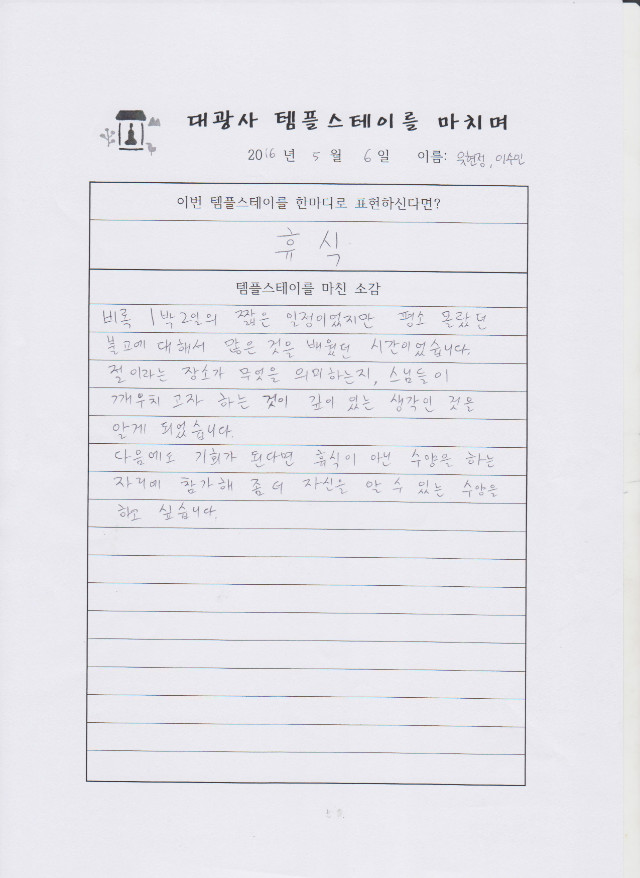 대광사 템플스테이를 마치며
2016 년 5 월 6 일 이름: 윤현정, 이수민
이번 템플스테이를 한마디로 표현하신다면?
휴 식
템플스테이를 마친 소감
비록 1박2일의 짧은 일정이었지만 평소 몰랐던
불교에 대해서 많은 것을 배웠던 시간이었습니다.
절이라는 장소가 무엇을 의미하는지, 스님들이
깨우치고자 하는 것이 깊이 있는 생각인 것을
알게 되었습니다.
다음에도 기회가 된다면 휴식이 아닌 수양을 하는
자리에 참가해 좀 더 자신을 알 수 있는 수양을
하고 싶습니다.